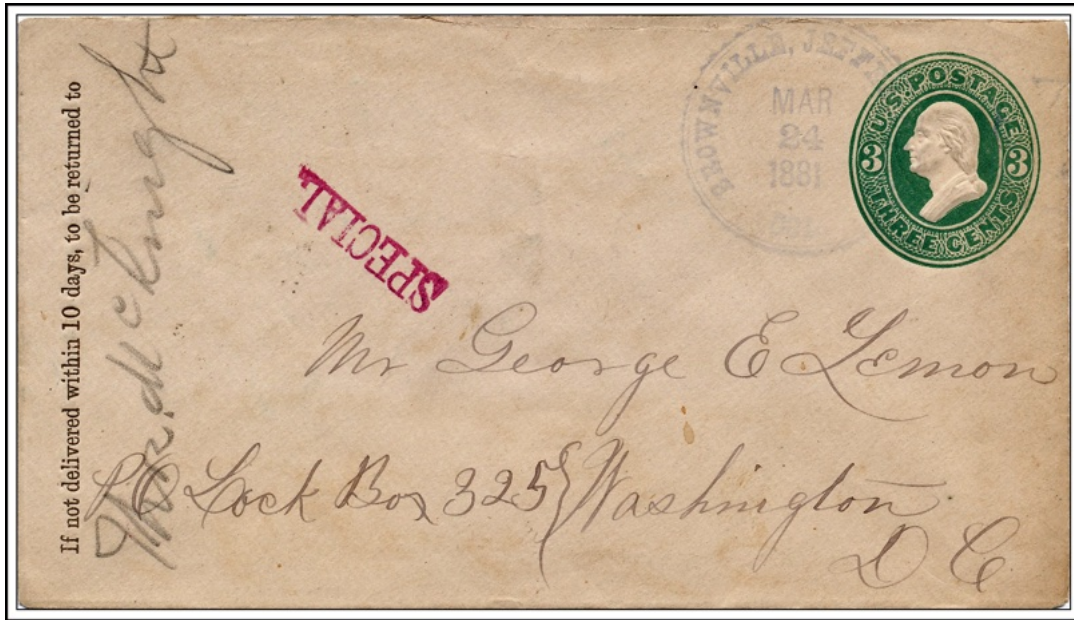 If not delivered within 10 days, to be returned to
BROWNVILLE, JEFF
MAR
24
1881
U.S. POSTAGE
3 3
THREE CENTS
SPECIAL
Mr George E Lemon
P O Lock Box 325 } Washington
D C